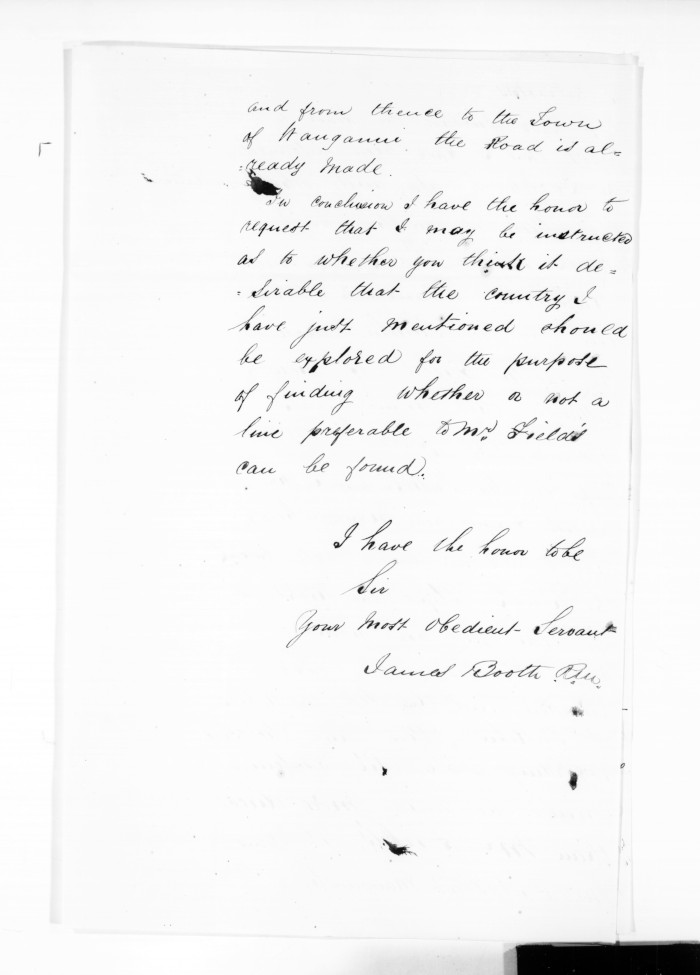 and from thence to the Town
of Wanganui the Road is al=
=ready made.
In conclusion I have the honor to
request that I may be instructed
as to whether you think it de=
=sirable that the country I
have just mentioned should
be explored for the purpose
of finding whether or not a
line preferable to Mr. Field's
can be found.
I have the honor to be
Sir
Your Most Obedient Servant
James Booth R.M.